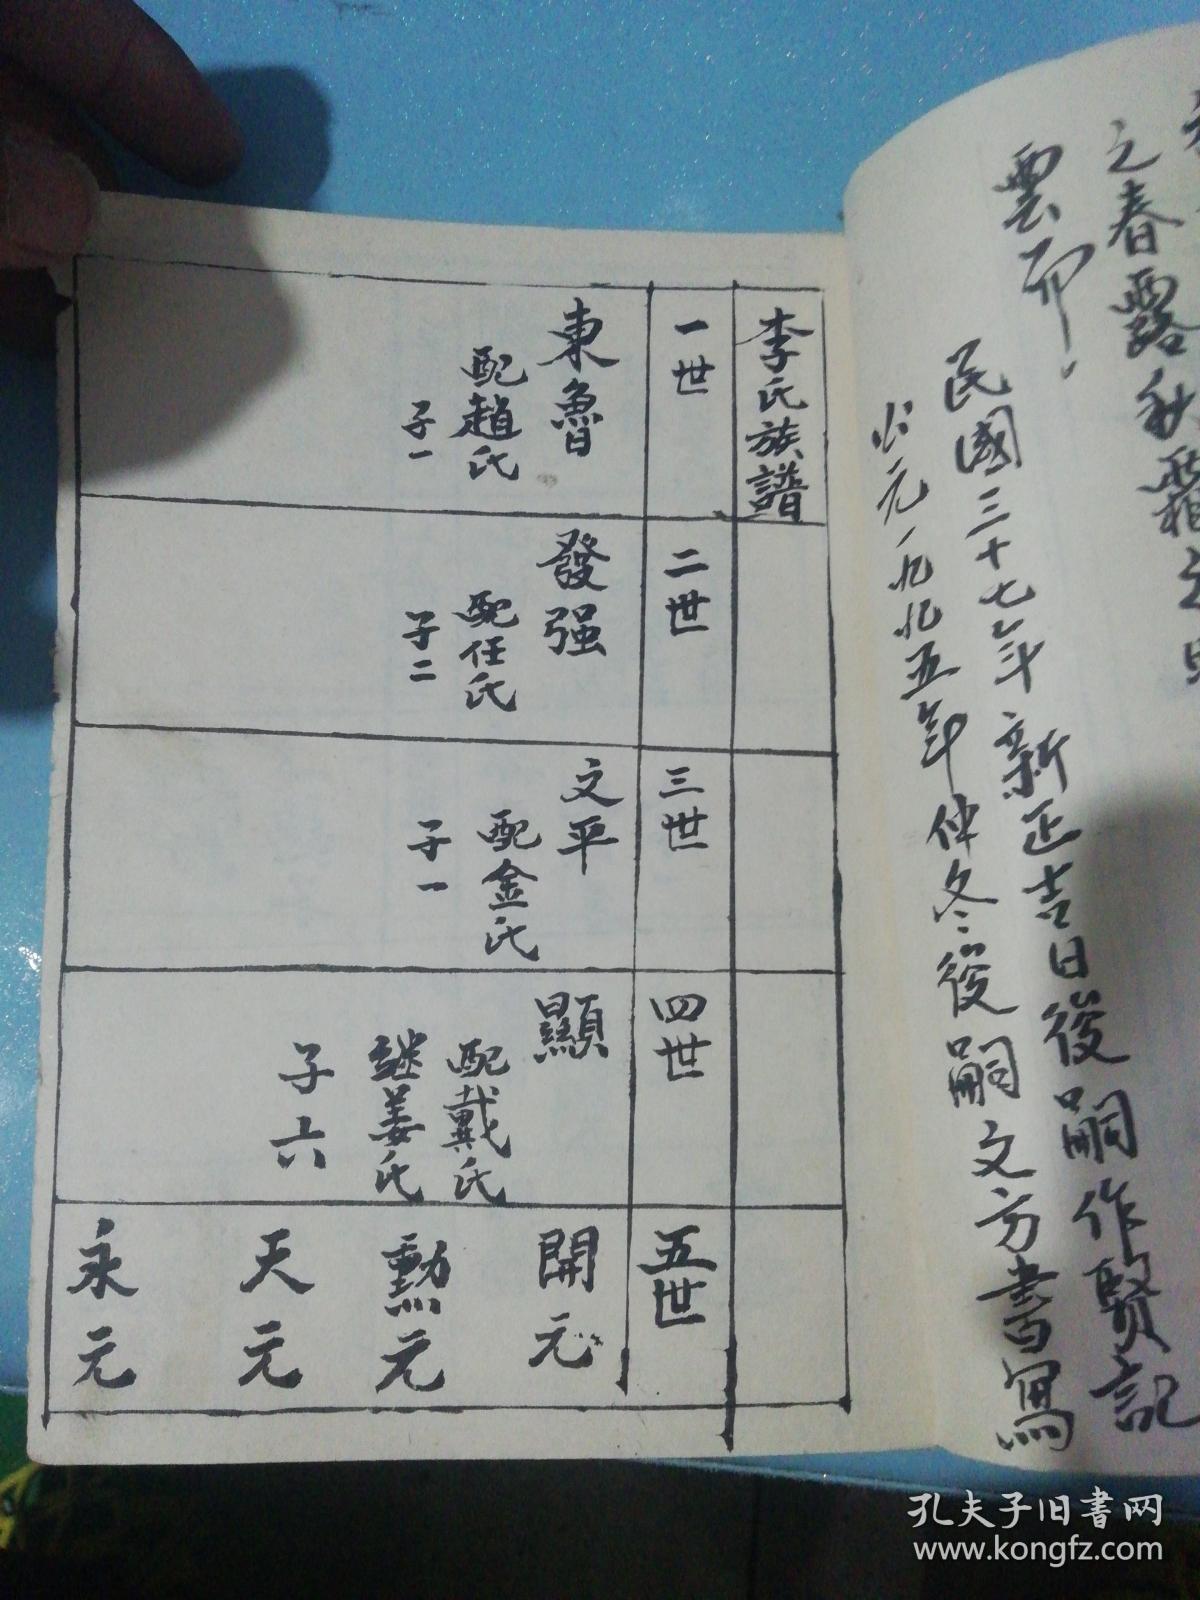 之春露秋霜之
雲尔
民國三十七年新正吉日後嗣作賢記
公元一九九五年仲冬後嗣文方書寫
李氏族譜
一世
東魯
配趙氏
子一
二世
發强
配任氏
子二
三世
文平
配金氏
子一
四世
顯
配戴氏
継姜氏
子六
五世
開元
勳元
天元
永元
孔夫子旧書网
www.kongfz.com